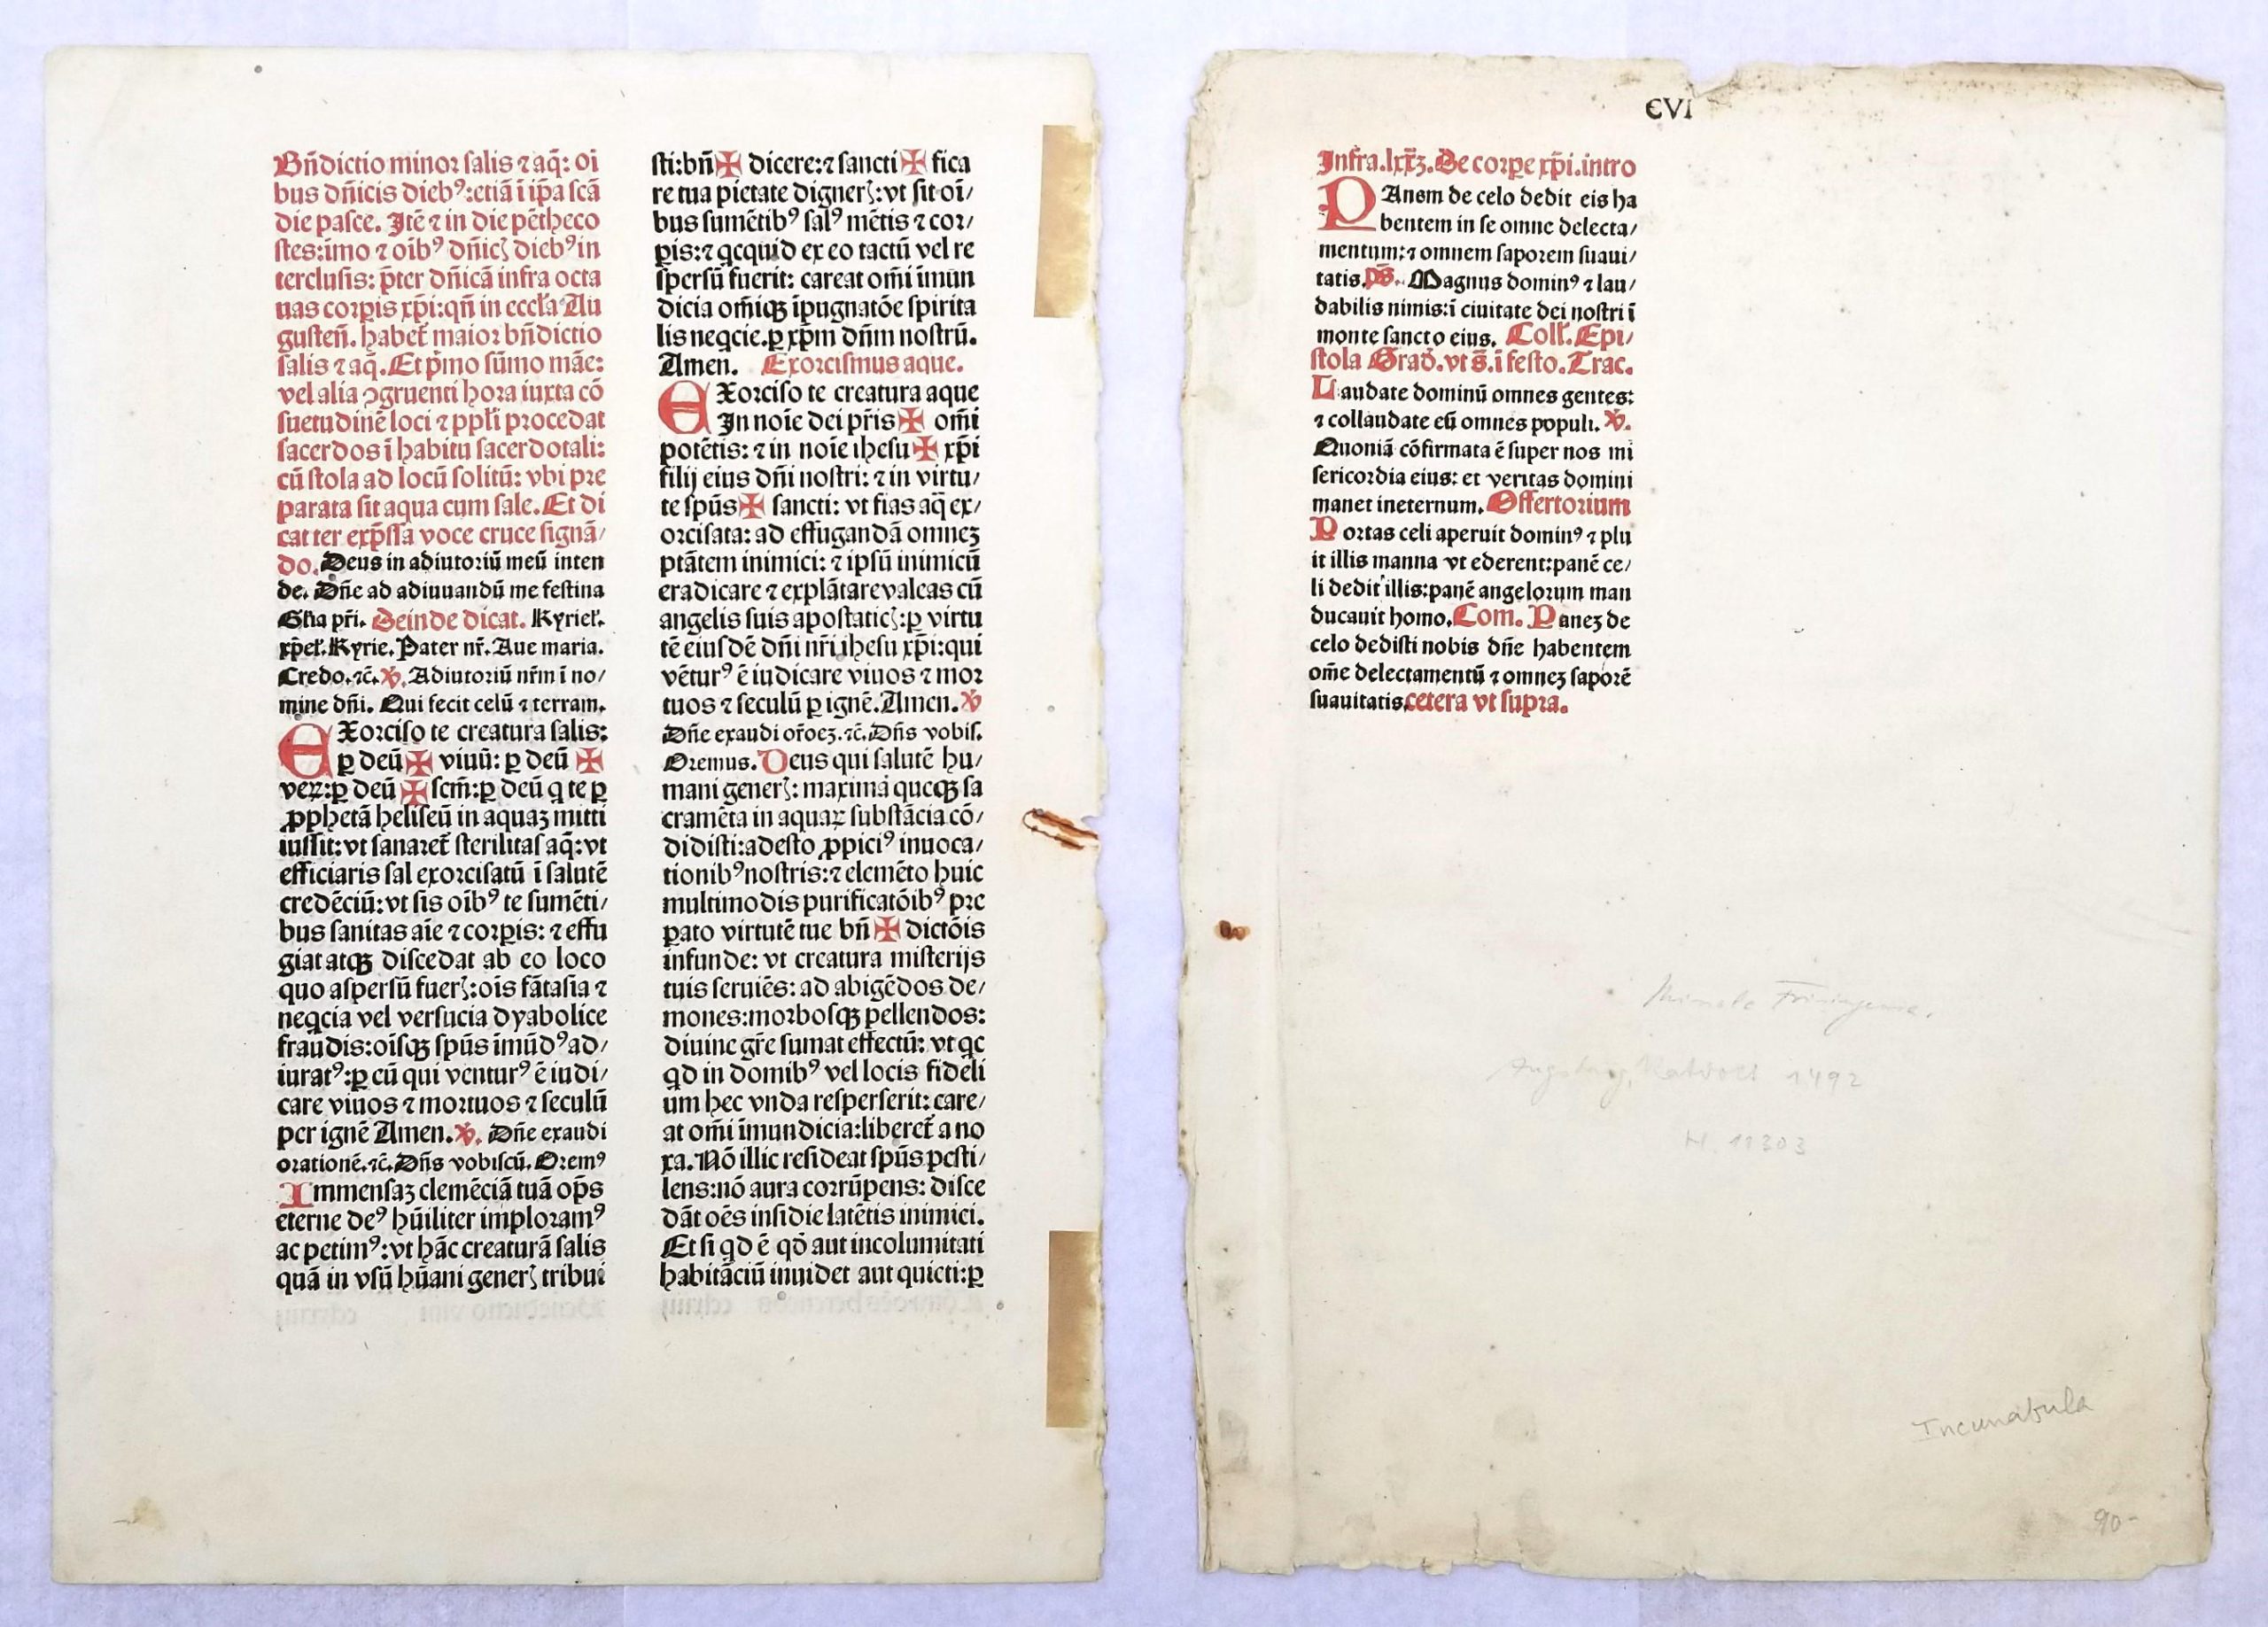 Bn̄dictio minor salis ⁊ aq̄: oī
bus dn̄icis dieb⁹: etiā ī ip̄a scā
die pasce. Itē ⁊ in die pētheco
stes: īmo ⁊ oīb⁹ dn̄icꝭ dieb⁹ in
terclusis: p̄ter dn̄icā infra octa
uas corꝑis xp̄i: qn̄ in eccl̄a Au
gusten̄. habet᷑ maior bn̄dictio
salis ⁊ aq̄. Et pͥmo sūmo māe:
vel alia ꝯgruenti hora iuxta cō
suetudinē loci ⁊ ppl̄i procedat
sacerdos ī habitu sacerdotali:
cū stola ad locū solitū: vbi pre
parata sit aqua cum sale. Et di
cat ter exp̄ssa voce cruce signā/
do. Deus in adiutoriū meū inten
de. Dn̄e ad adiuuandū me festina
Gl̄ia pr̄i. Deinde dicat. Kyriel̄.
xp̄el̄. Kyrie. Pater nr̄. Aue maria.
Credo. ⁊c̄. ℣. Adiutoriū nr̄m ī no/
mine dn̄i. Qui fecit celū ⁊ terram.
EXorciso te creatura salis:
ꝑ deū ✠ viuū: ꝑ deū ✠
veꝝ: ꝑ deū ✠ scm̄: ꝑ deū q te ꝑ
ꝓphetā heliseū in aquaꝫ mitti
iussit: vt sanaret᷑ sterilitas aq̄: vt
efficiaris sal exorcisatū ī salutē
credēciū: vt sis oīb⁹ te sumēti/
bus sanitas aīe ⁊ corꝑis: ⁊ effu
giat atqꝫ discedat ab eo loco
quo aspersū fuerꝭ: oīs fātasia ⁊
neqcia vel versucia dyabolice
fraudis: oīsqꝫ spūs īmūd⁹ ad/
iurat⁹: ꝑ eū qui ventur⁹ ē iudi/
care viuos ⁊ mortuos ⁊ seculū
per ignē Amen. ℣. Dn̄e exaudi
orationē. ⁊c̄. Dn̄s vobiscū. Orem⁹
Immensaꝫ clemēciā tuā op̄s
eterne de⁹ hūiliter imploram⁹
ac petim⁹: vt hāc creaturā salis
quā in vsū hūani generꝭ tribui
sti: bn̄ ✠ dicere: ⁊ sancti ✠ fica
re tua pietate dignerꝭ: vt sit oī/
bus sumētib⁹ sal⁹ mētis ⁊ cor/
ꝑis: ⁊ qcquid ex eo tactū vel re
spersū fuerit: careat om̄i īmun
dicia om̄iqꝫ īpugnatōe spirita
lis neqcie. ꝑ xp̄m dn̄m nostrū.
Amen. Exorcismus aque.
EXorciso te creatura aque
In noīe dei pr̄is ✠ om̄i
potētis: ⁊ in noīe ihesu ✠ xp̄i
filij eius dn̄i nostri: ⁊ in virtu/
te spūs ✠ sancti: vt fias aq̄ ex/
orcisata: ad effugandā omneꝫ
ptātem inimici: ⁊ ipsū inimicū
eradicare ⁊ explātare valeas cū
angelis suis apostaticꝭ: ꝑ virtu
tē eiusdē dn̄i nr̄i ihesu xp̄i: qui
vētur⁹ ē iudicare viuos ⁊ mor
tuos ⁊ seculū ꝑ ignē. Amen. ℣
Dn̄e exaudi or̄oeꝫ. ⁊c̄. Dn̄s vobis.
Oremus. Deus qui salutē hu/
mani generꝭ: maxima queqꝫ sa
cramēta in aquaꝝ substācia cō/
didisti: adesto ꝓpici⁹ inuoca/
tionib⁹ nostris: ⁊ elemēto huic
multimodis purificatōib⁹ pre
pato virtutē tue bn̄ ✠ dictōis
infunde: vt creatura misterijs
tuis seruiēs: ad abigēdos de/
mones: morbosqꝫ pellendos:
diuine gr̄e sumat effectū: vt qc
qd in domib⁹ vel locis fideli
um hec vnda resperserit: care/
at om̄i īmundicia: liberet᷑ a no
xa. Nō illic resideat spūs pesti/
lens: nō aura corrūpens: disce
dāt oēs insidie latētis inimici.
Et si qd ē qd̄ aut incolumitati
habitāciū inuidet aut quieti: ꝑ
CVI
Infra. lxx̄ꝫ. De corꝑe xp̄i. intro
PAnem de celo dedit eis ha
bentem in se omne delecta/
mentum: ⁊ omnem saporem suaui/
tatis. ps̄. Magnus domin⁹ ⁊ lau/
dabilis nimis: ī ciuitate dei nostri ī
monte sancto eius. Coll̄. Epi/
stola Grad̄. vt s̄. ī festo. Trac.
Laudate dominū omnes gentes:
⁊ collaudate eū omnes populi. ℣.
Quoniā cōfirmata ē super nos mi
sericordia eius: et veritas domini
manet ineternum. Offertorium
Portas celi aperuit domin⁹ ⁊ plu
it illis manna vt ederent: panē ce/
li dedit illis: panē angelorum man
ducauit homo. Com. Paneꝫ de
celo dedisti nobis dn̄e habentem
om̄e delectamentū ⁊ omneꝫ saporē
suauitatis. cetera vt supra.
Augsburg, Ratdolt 1492
H. 11303
Incunabula
90-